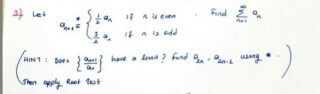 2) Let a_{n+1} * = { 1/2 a_n if n is even Find ∞ Σ n=1 a_n
3/2 a_n if n is odd
(HINT: Does { a_{n+1} / a_n } have a limit? find a_{2n}, a_{2n-1} using *.
then apply Root Test )